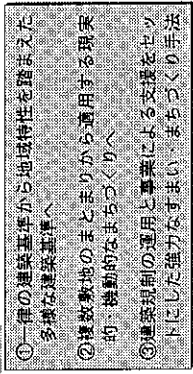 ①一律の建築基準から地域特性を踏まえた
多様な建築基準へ
②複数敷地のまとまりから適用する現実
的・機動的なまちづくりへ
③建築規制の運用と事業による支援をセッ
トにした強力なすまい・まちづくり手法